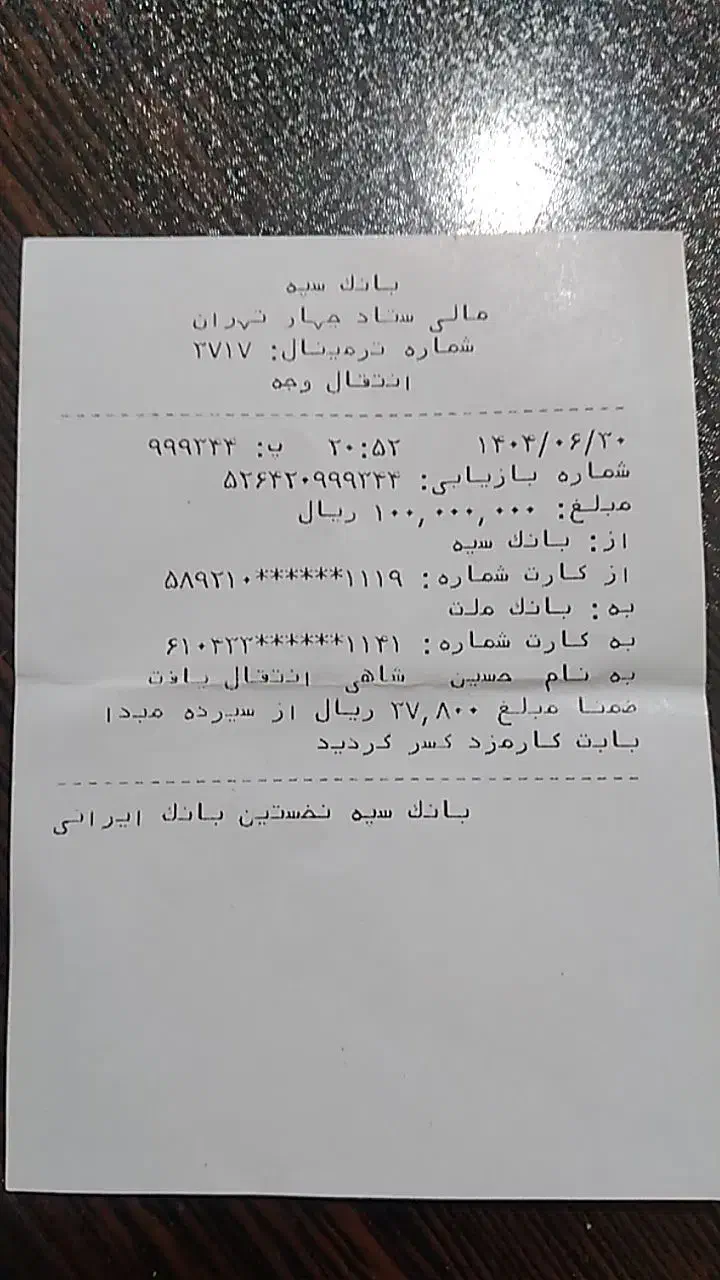 بانك سپه
مالی ستاد چهار تهران
شماره ترمینال: ۲۷۱۷
انتقال وجه
۱۴۰۴/۰۶/۲۰ ۲۰:۵۲ پ: ۹۹۹۲۴۴
شماره بازیابی: ۵۲۶۴۲۰۹۹۹۲۴۴
مبلغ: ۱۰۰,۰۰۰,۰۰۰ ریال
از: بانك سپه
از کارت شماره: ۵۸۹۲۱۰******۱۱۱۹
به: بانك ملت
به کارت شماره: ۶۱۰۴۳۳******۱۱۴۱
به نام حسین شاهی انتقال یافت
ضمنا مبلغ ۲۷,۸۰۰ ریال از سپرده مبدا
بابت کارمزد کسر گردید
بانك سپه نخستین بانك ایرانی